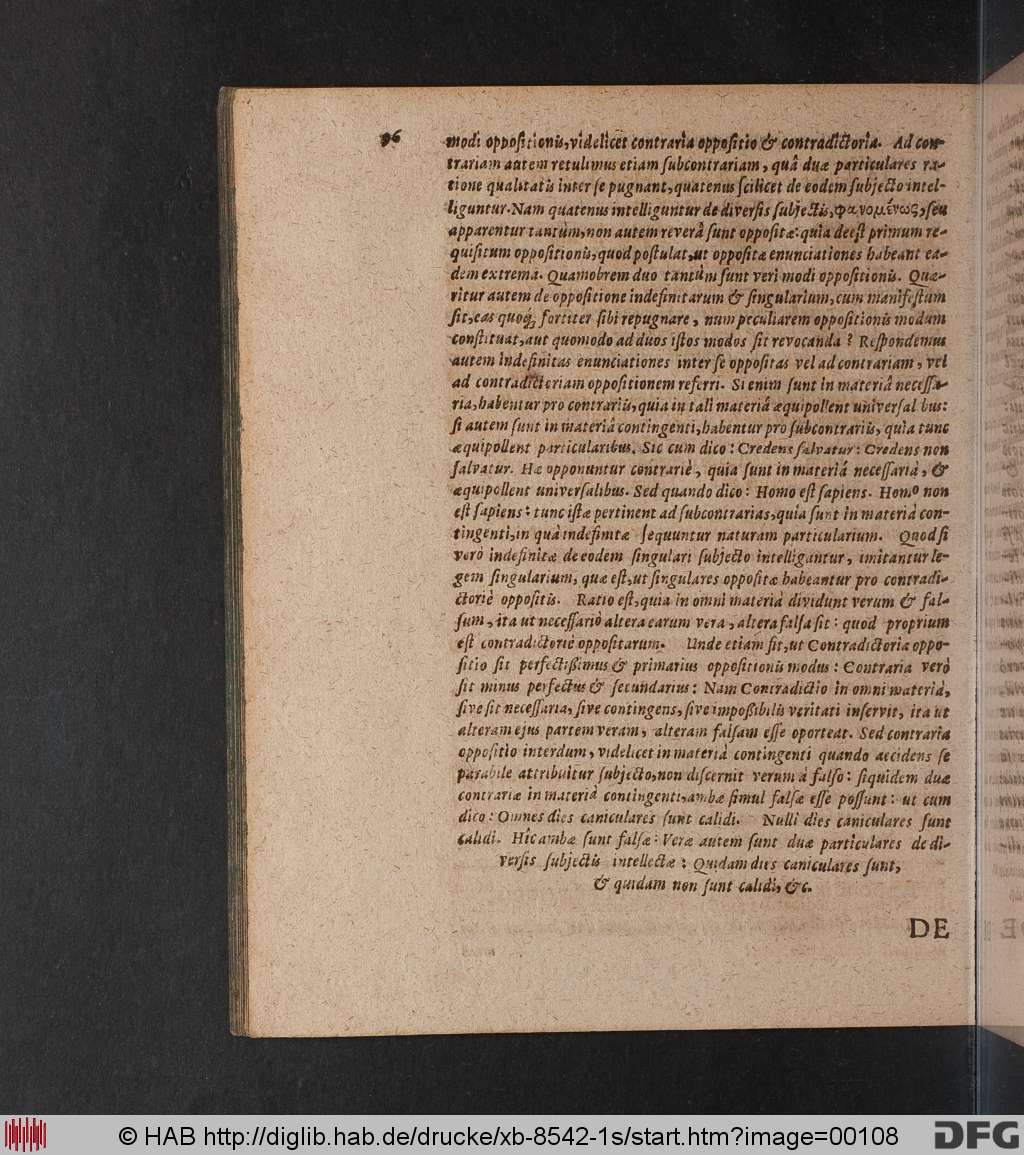 96
modi oppoſitionis, videlicet contraria oppoſitio & contradictoria. Ad con-
trariam autem retulimus etiam ſubcontrariam, quâ duæ particulares ra-
tione qualitatis inter ſe pugnant, quatenus ſcilicet de eodem ſubjecto intel-
liguntur. Nam quatenus intelliguntur de diverſis ſubjectis, φανομένως, ſeu
apparentur tantùm, non autem reverâ ſunt oppoſitæ: quia deeſt primum re-
quiſitum oppoſitionis, quod poſtulat, ut oppoſitæ enunciationes habeant ea-
dem extrema. Quamobrem duo tantùm ſunt veri modi oppoſitionis. Quæ-
ritur autem de oppoſitione indefinitarum & ſingularium, cum manifeſtum
ſit, eas quoq; fortiter ſibi repugnare, num peculiarem oppoſitionis modum
conſtituat, aut quomodo ad duos iſtos modos ſit revocanda? Reſpondemus
autem indefinitas enunciationes inter ſe oppoſitas vel ad contrariam, vel
ad contradictoriam oppoſitionem referri. Si enim ſunt in materiâ neceſſa-
ria, habentur pro contrariis, quia in tali materiâ æquipollent univerſal bus:
ſi autem ſunt in materiâ contingenti, habentur pro ſubcontrariis, quia tunc
æquipollent particularibus. Sic cum dico: Credens ſalvatur: Credens non
ſalvatur. Hæ opponuntur contrariè, quia ſunt in materiâ neceſſariâ, &
æquipollent univerſalibus. Sed quando dico: Homo eſt ſapiens. Homo non
eſt ſapiens: tunc iſtæ pertinent ad ſubcontrarias, quia ſunt in materiâ con-
tingenti, in quâ indefinitæ ſequuntur naturam particularium. Quod ſi
verò indefinitæ de eodem ſingulari ſubjecto intelligantur, imitantur le-
gem ſingularium, quæ eſt, ut ſingulares oppoſitæ habeantur pro contradi-
ctoriè oppoſitis. Ratio eſt, quia in omni materiâ dividunt verum & fal-
ſum, ita ut neceſſariò altera earum vera, altera falſa ſit: quod proprium
eſt contradictoriè oppoſitarum. Unde etiam fit, ut Contradictoria oppo-
ſitio ſit perfectißimus & primarius oppoſitionis modus: Contraria verò
ſit minus perfectus & ſecundarius: Nam Contradictio in omni materiâ,
ſive ſit neceſſaria, ſive contingens, ſive impoßibilis veritati inſervit, ita ut
alteram ejus partem veram, alteram falſam eſſe oporteat. Sed contraria
oppoſitio interdum, videlicet in materiâ contingenti quando accidens ſe
parabile attribuitur ſubjecto, non diſcernit verum à falſo: ſiquidem duæ
contrariæ in materiâ contingenti, ambæ ſimul falſæ eſſe poſſunt: ut cum
dico: Omnes dies caniculares ſunt calidi. Nulli dies caniculares ſunt
calidi. Hîc ambæ ſunt falſæ: Veræ autem ſunt duæ particulares de di-
verſis ſubjectis intellectæ: Quidam dies caniculares ſunt,
& quidam non ſunt calidi, &c.
DE
© HAB http://diglib.hab.de/drucke/xb-8542-1s/start.htm?image=00108
DFG